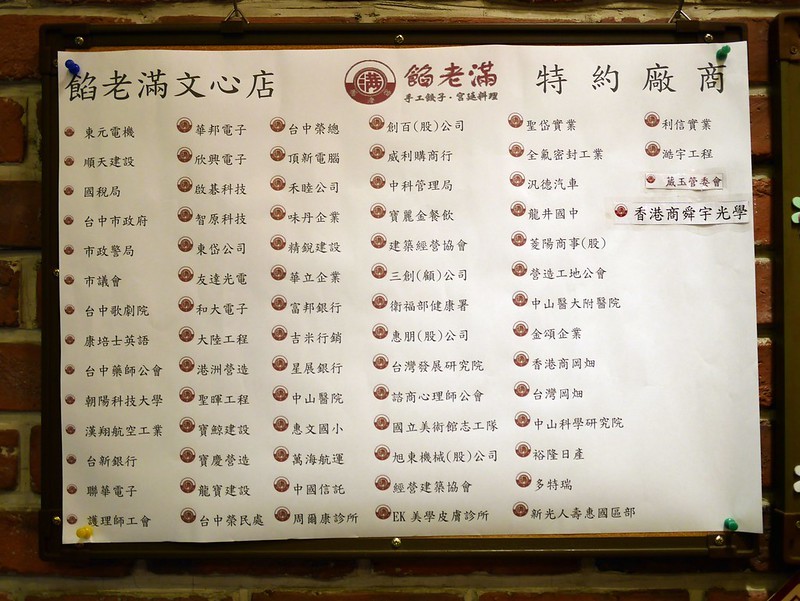 餡老滿文心店
滿
餡老滿
手工餃子·宮廷料理
特約廠商
東元電機
順天建設
國稅局
台中市政府
市政警局
市議會
台中歌劇院
康培士英語
台中藥師公會
朝陽科技大學
漢翔航空工業
台新銀行
聯華電子
護理師工會
華邦電子
欣興電子
啟碁科技
智原科技
東岱公司
友達光電
和大電子
大陸工程
港洲營造
聖暉工程
寶鯨建設
寶慶營造
龍寶建設
台中榮民處
台中榮總
頂新電腦
禾睦公司
味丹企業
精銳建設
華立企業
富邦銀行
吉米行銷
星展銀行
中山醫院
惠文國小
萬海航運
中國信託
周爾康診所
創百(股)公司
威利購商行
中科管理局
寶麗金餐飲
建築經營協會
三創(顧)公司
衛福部健康署
惠朋(股)公司
台灣發展研究院
諮商心理師公會
國立美術館志工隊
旭東機械(股)公司
經營建築協會
EK美學皮膚診所
聖岱實業
全氟密封工業
汎德汽車
龍井國中
菱陽商事(股)
營造工地公會
中山醫大附醫院
金頌企業
香港商岡畑
台灣岡畑
中山科學研究院
裕隆日產
多特瑞
新光人壽惠國區部
利信實業
澔宇工程
箴玉管委會
香港商舜宇光學